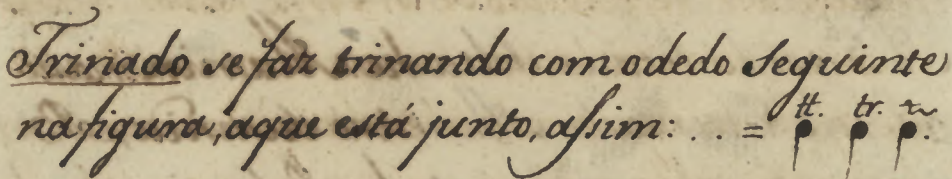 Trinado se faz trinando com o dedo seguinte
na figura, aque está junto, assim: . . = tt. tr. ~.